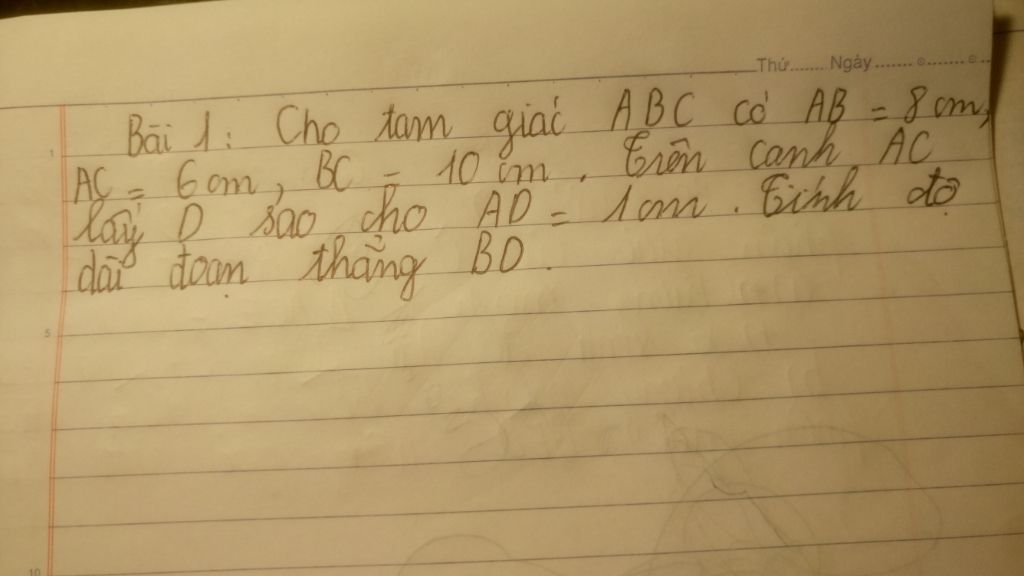 Thứ....... Ngày ....... o ....... o ..
Bài 1: Cho tam giác ABC có AB = 8 cm,
1
AC = 6 cm, BC = 10 cm. Trên cạnh AC
lấy D sao cho AD = 1 cm. Tính độ
dài đoạn thẳng BD.
5
10